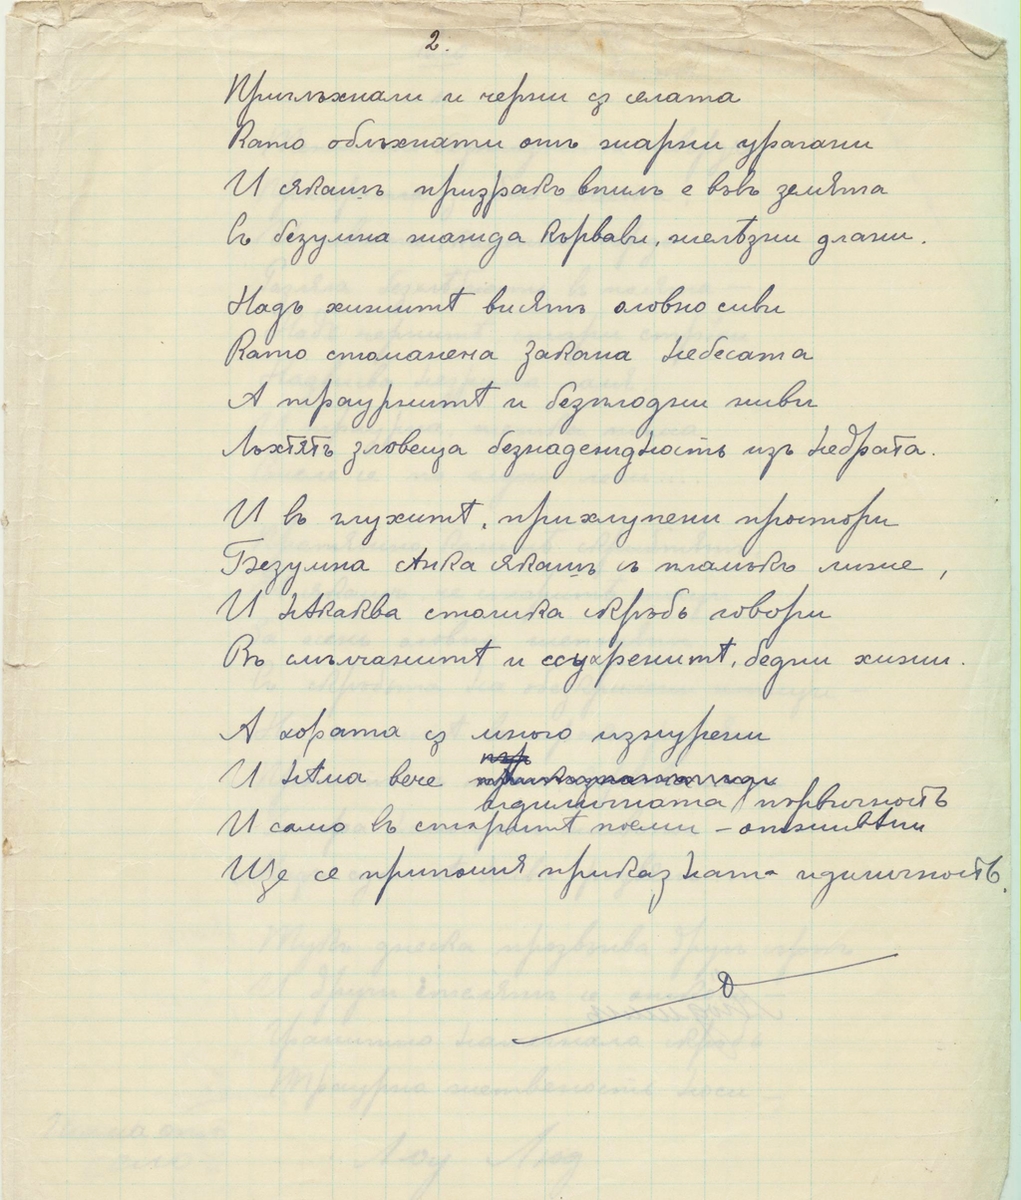 2.
Приглъхнали и черни сѫ селата
Като облъхнати отъ жарни урагани
И сякашъ призракъ впилъ е въвъ земята
Въ безумна жажда кървави, желѣзни длани.
Надъ хижитѣ висятъ оловно сиви
Като стоманена закана небесата
А траурнитѣ и безплодни ниви
Лъхтятъ зловеща безнадеждность изъ недрата.
И въ глухитѣ, прихлупени простори
Безумна сѣнка сякашъ и пламъкъ лиже,
И нѣкаква стогика скръбь говори
Въ смълчанитѣ и сгухренитѣ, бедни хижи.
А хората сѫ много изнурени
И нѣма вече
идиличната първичность
И само въ старитѣ поеми – отживѣли
Ще се припомня приказната идиличность.